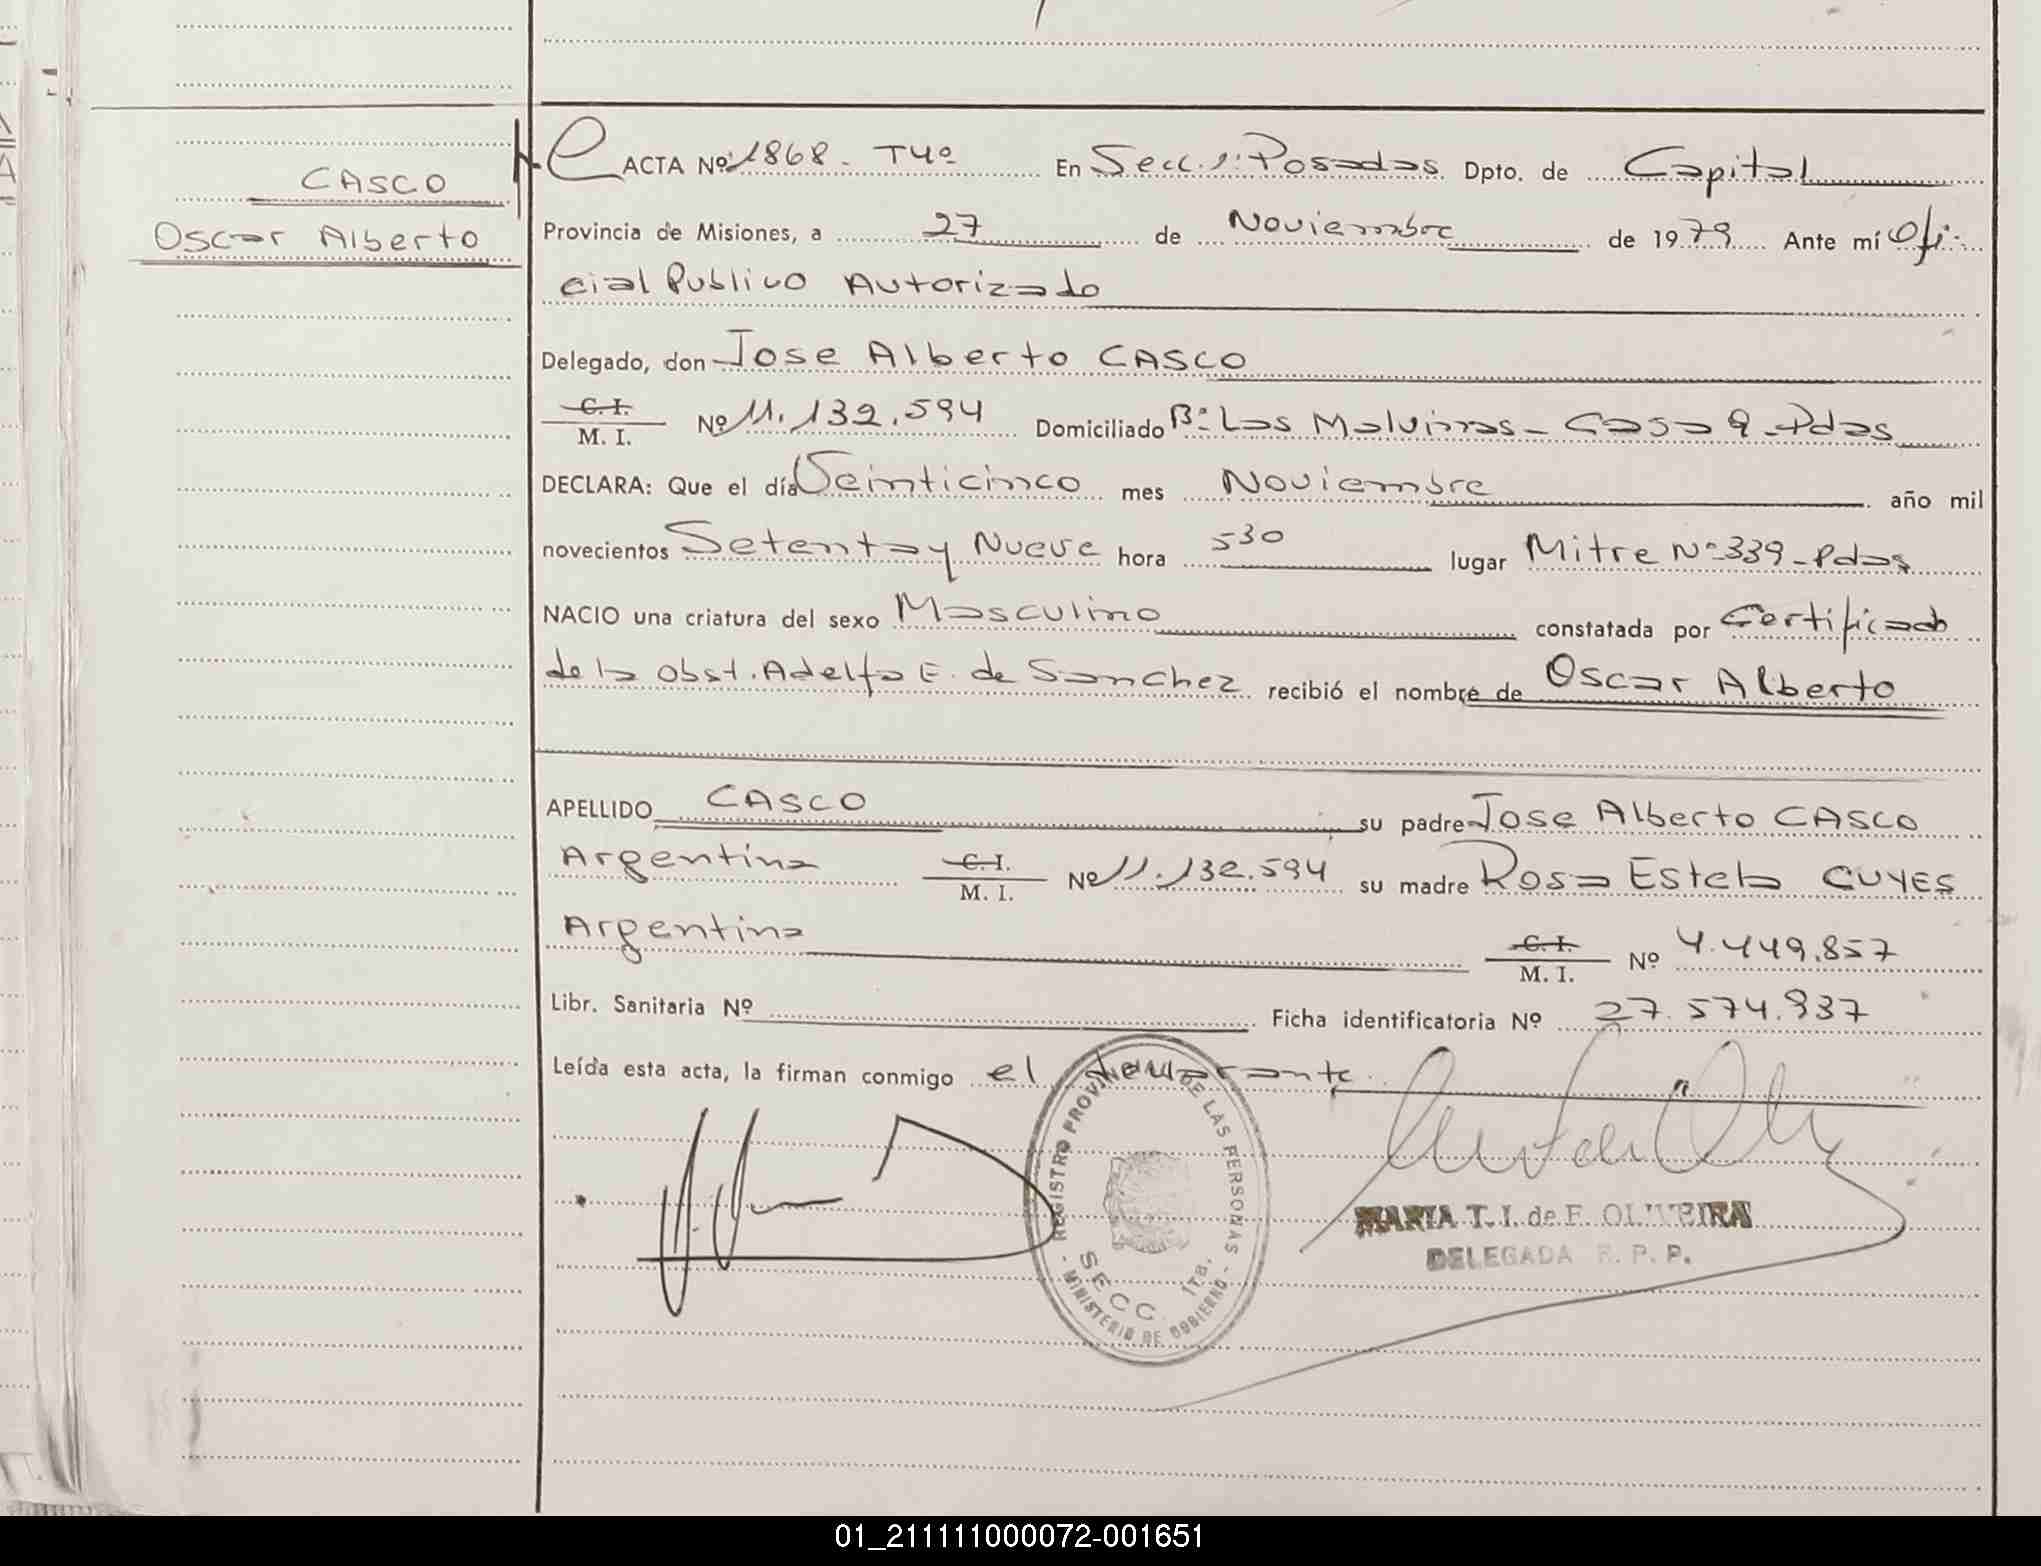 CASCO
Oscar Alberto
ACTA Nº 1868 - T4º En Secc. 1ª Posadas Dpto. de Capital
Provincia de Misiones, a 27 de Noviembre de 1979 Ante mí Ofi-
cial Publico Autorizado
Delegado, don Jose Alberto CASCO
C. I.
M. I. Nº 11.132.594 Domiciliado Bº Las Malvinas - Casa 9 - Pdas
DECLARA: Que el día Veinticinco mes Noviembre año mil
novecientos Setenta y Nueve hora 530 lugar Mitre Nº 339 - Pdas
NACIO una criatura del sexo Masculino constatada por Certificado
de la Obst. Adelfa E. de Sanchez recibió el nombre de Oscar Alberto
APELLIDO CASCO su padre Jose Alberto CASCO
Argentina C. I.
M. I. Nº 11.132.594 su madre Rosa Estela CUYES
Argentina C. I.
M. I. Nº 4.449.857
Libr. Sanitaria Nº Ficha identificatoria Nº 27.574.937
Leída esta acta, la firman conmigo el declarante
REGISTRO PROVINCIAL DE LAS PERSONAS
SECC. 1ra.
- MINISTERIO DE GOBIERNO -
MARIA T. I. de F. OLIVEIRA
DELEGADA R. P. P.
01_211111000072-001651